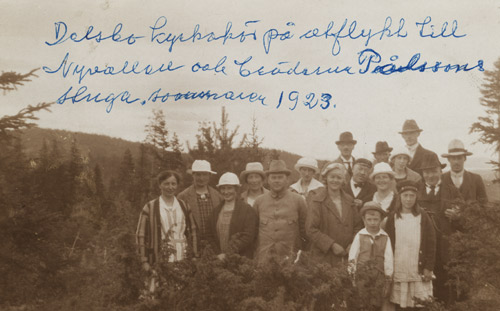 Delsbo kyrkokör på utflykt till
Nyvallen och bröderna Pålssons
stuga, sommaren 1923.